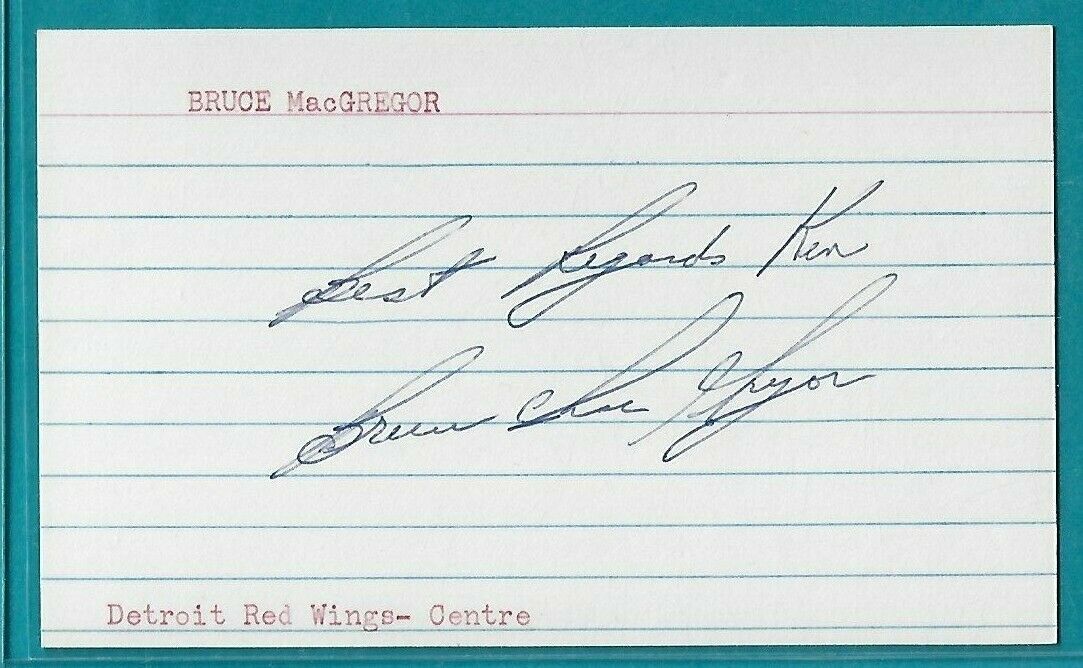 BRUCE MacGREGOR
Best Regards Ken
Bruce MacGregor
Detroit Red Wings- Centre